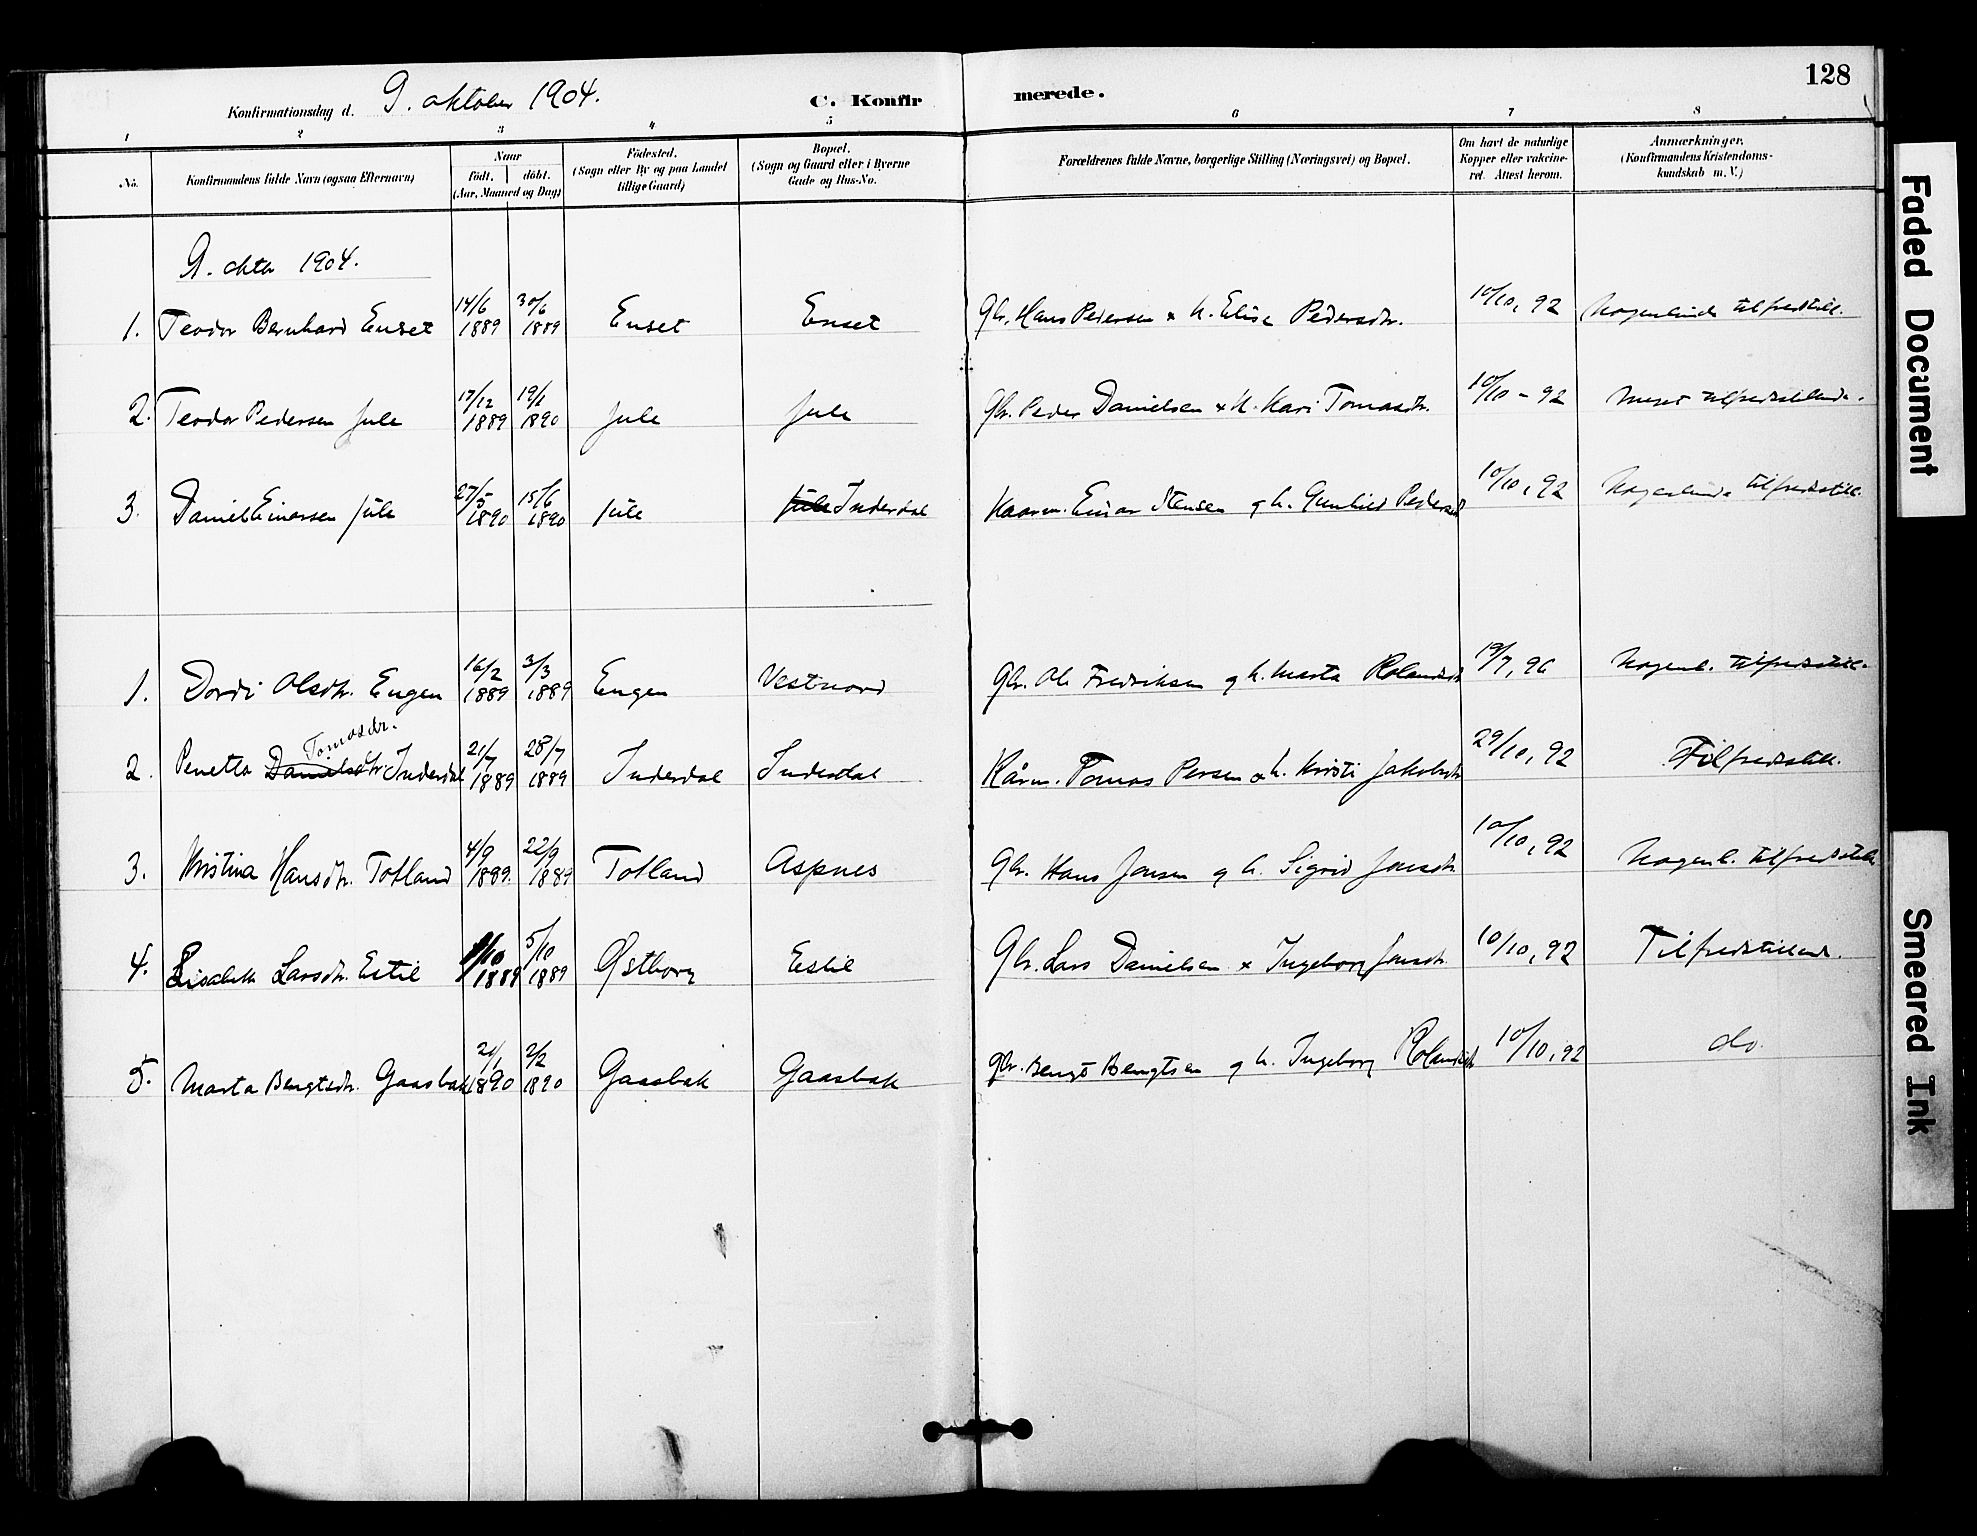 128
Konfirmationsdag d. 9. oktober 1904. C. Konfirmerede.
1 2 3 4 5 6 7 8
No. Konfirmandens fulde Navn (ogsaa Efternavn) Naar födt. döbt. (Aar, Maaned og Dag) Födested. (Sogn eller By og paa Landet tillige Gaard) Bopæl. (Sogn og Gaard eller i Byerne Gade og Hus-No. Forældrenes fulde Navne, borgerlige Stilling (Næringsvei) og Bopæl. Om havt de naturlige Kopper eller vakcineret. Attest herom. Anmærkninger. (Konfirmandens Kristendomskundskab m. V.)
9. okto 1904.
1. Teodor Bernhard Enset 14/6 1889 30/6 1889 Enset Enset Gbr. Hans Pedersen & h. Elise Pedersdtr. 10/10, 92 Nogenlunde tilfredstill.
2. Teodor Pedersen Jule 17/12 1889 19/1 1890 Jule Jule Gbr. Peder Danielsen & h. Kari Tomasdtr. 10/10 - 92 Meget tilfredstillende.
3. Daniel Einarsen Jule 27/5 1890 15/6 1890 Jule Jule Inderdal Kaarm. Einar Stensen og h. Gunhild Pedersd 10/10, 92 Nogenlunde tilfredsstill.
1. Dordi Olsdtr. Engen 16/2 1889 3/3 1889 Engen Vestnord Gbr. Ole Fredriksen og h. Marta Rolandsdt 19/7, 96 Nogenl. tilfredsstill.
Tomasdtr.
2. Penetta Danielsdtr. Inderdal 21/7 1889 28/7 1889 Inderdal Inderdal Kårm. Tomas Persen & h. Kristi Jakobsdtr 29/10, 92 Tilfredsstill.
3. Kristina Hansdtr. Totland 4/9 1889. 22/9 1889 Totland Aspnes Gbr. Hans Jonsen og h. Sigrid Jonsdtr 10/10, 92 Nogenl. tilfredsstill
4. Elisabeth Larsdtr. Estil 1/10 1889 5/10 1889 Østborg Estil Gbr. Lars Danielsen & Ingeborg Jonsdtr. 10/10, 92 Tilfredstillend.
5. Marta Bengtsdtr. Gaasbak 21/1 1890 2/2 1890 Gaasbak Gaasbak Gbr. Bengt Bengtsen og h. Ingeborg Rolandsdt 10/10, 92 do.
Faded Document
Smeared Ink